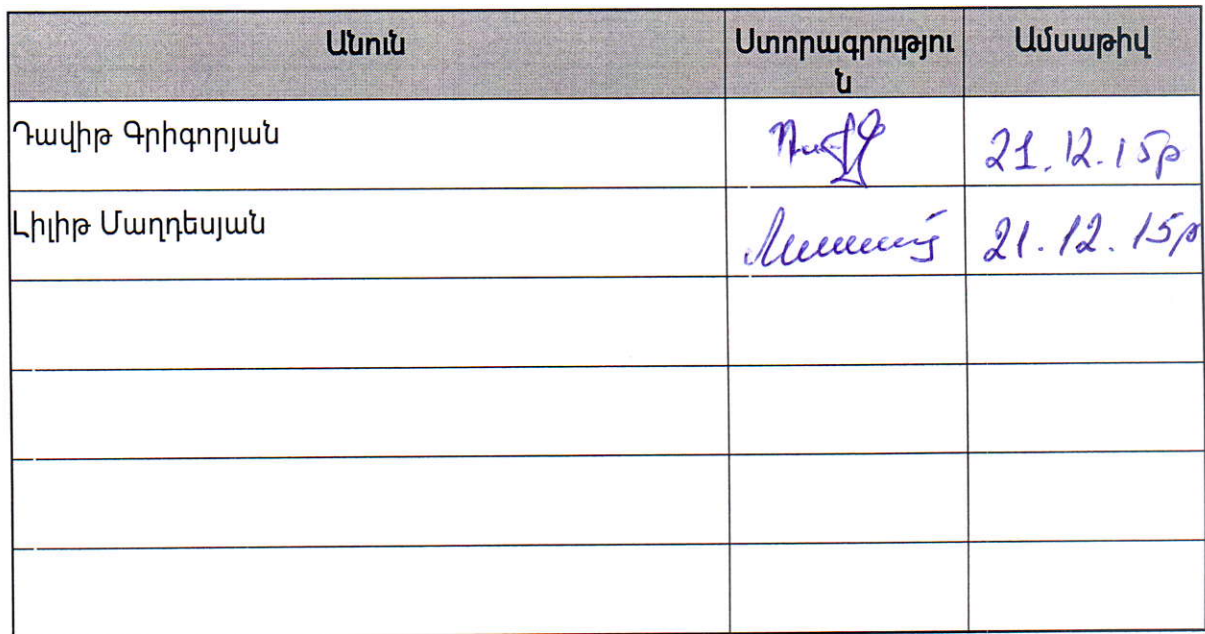 Անուն Ստորագրությու
ն Ամսաթիվ
Դավիթ Գրիգորյան 21.12.15թ
Լիլիթ Մաղդեսյան 21.12.15թ